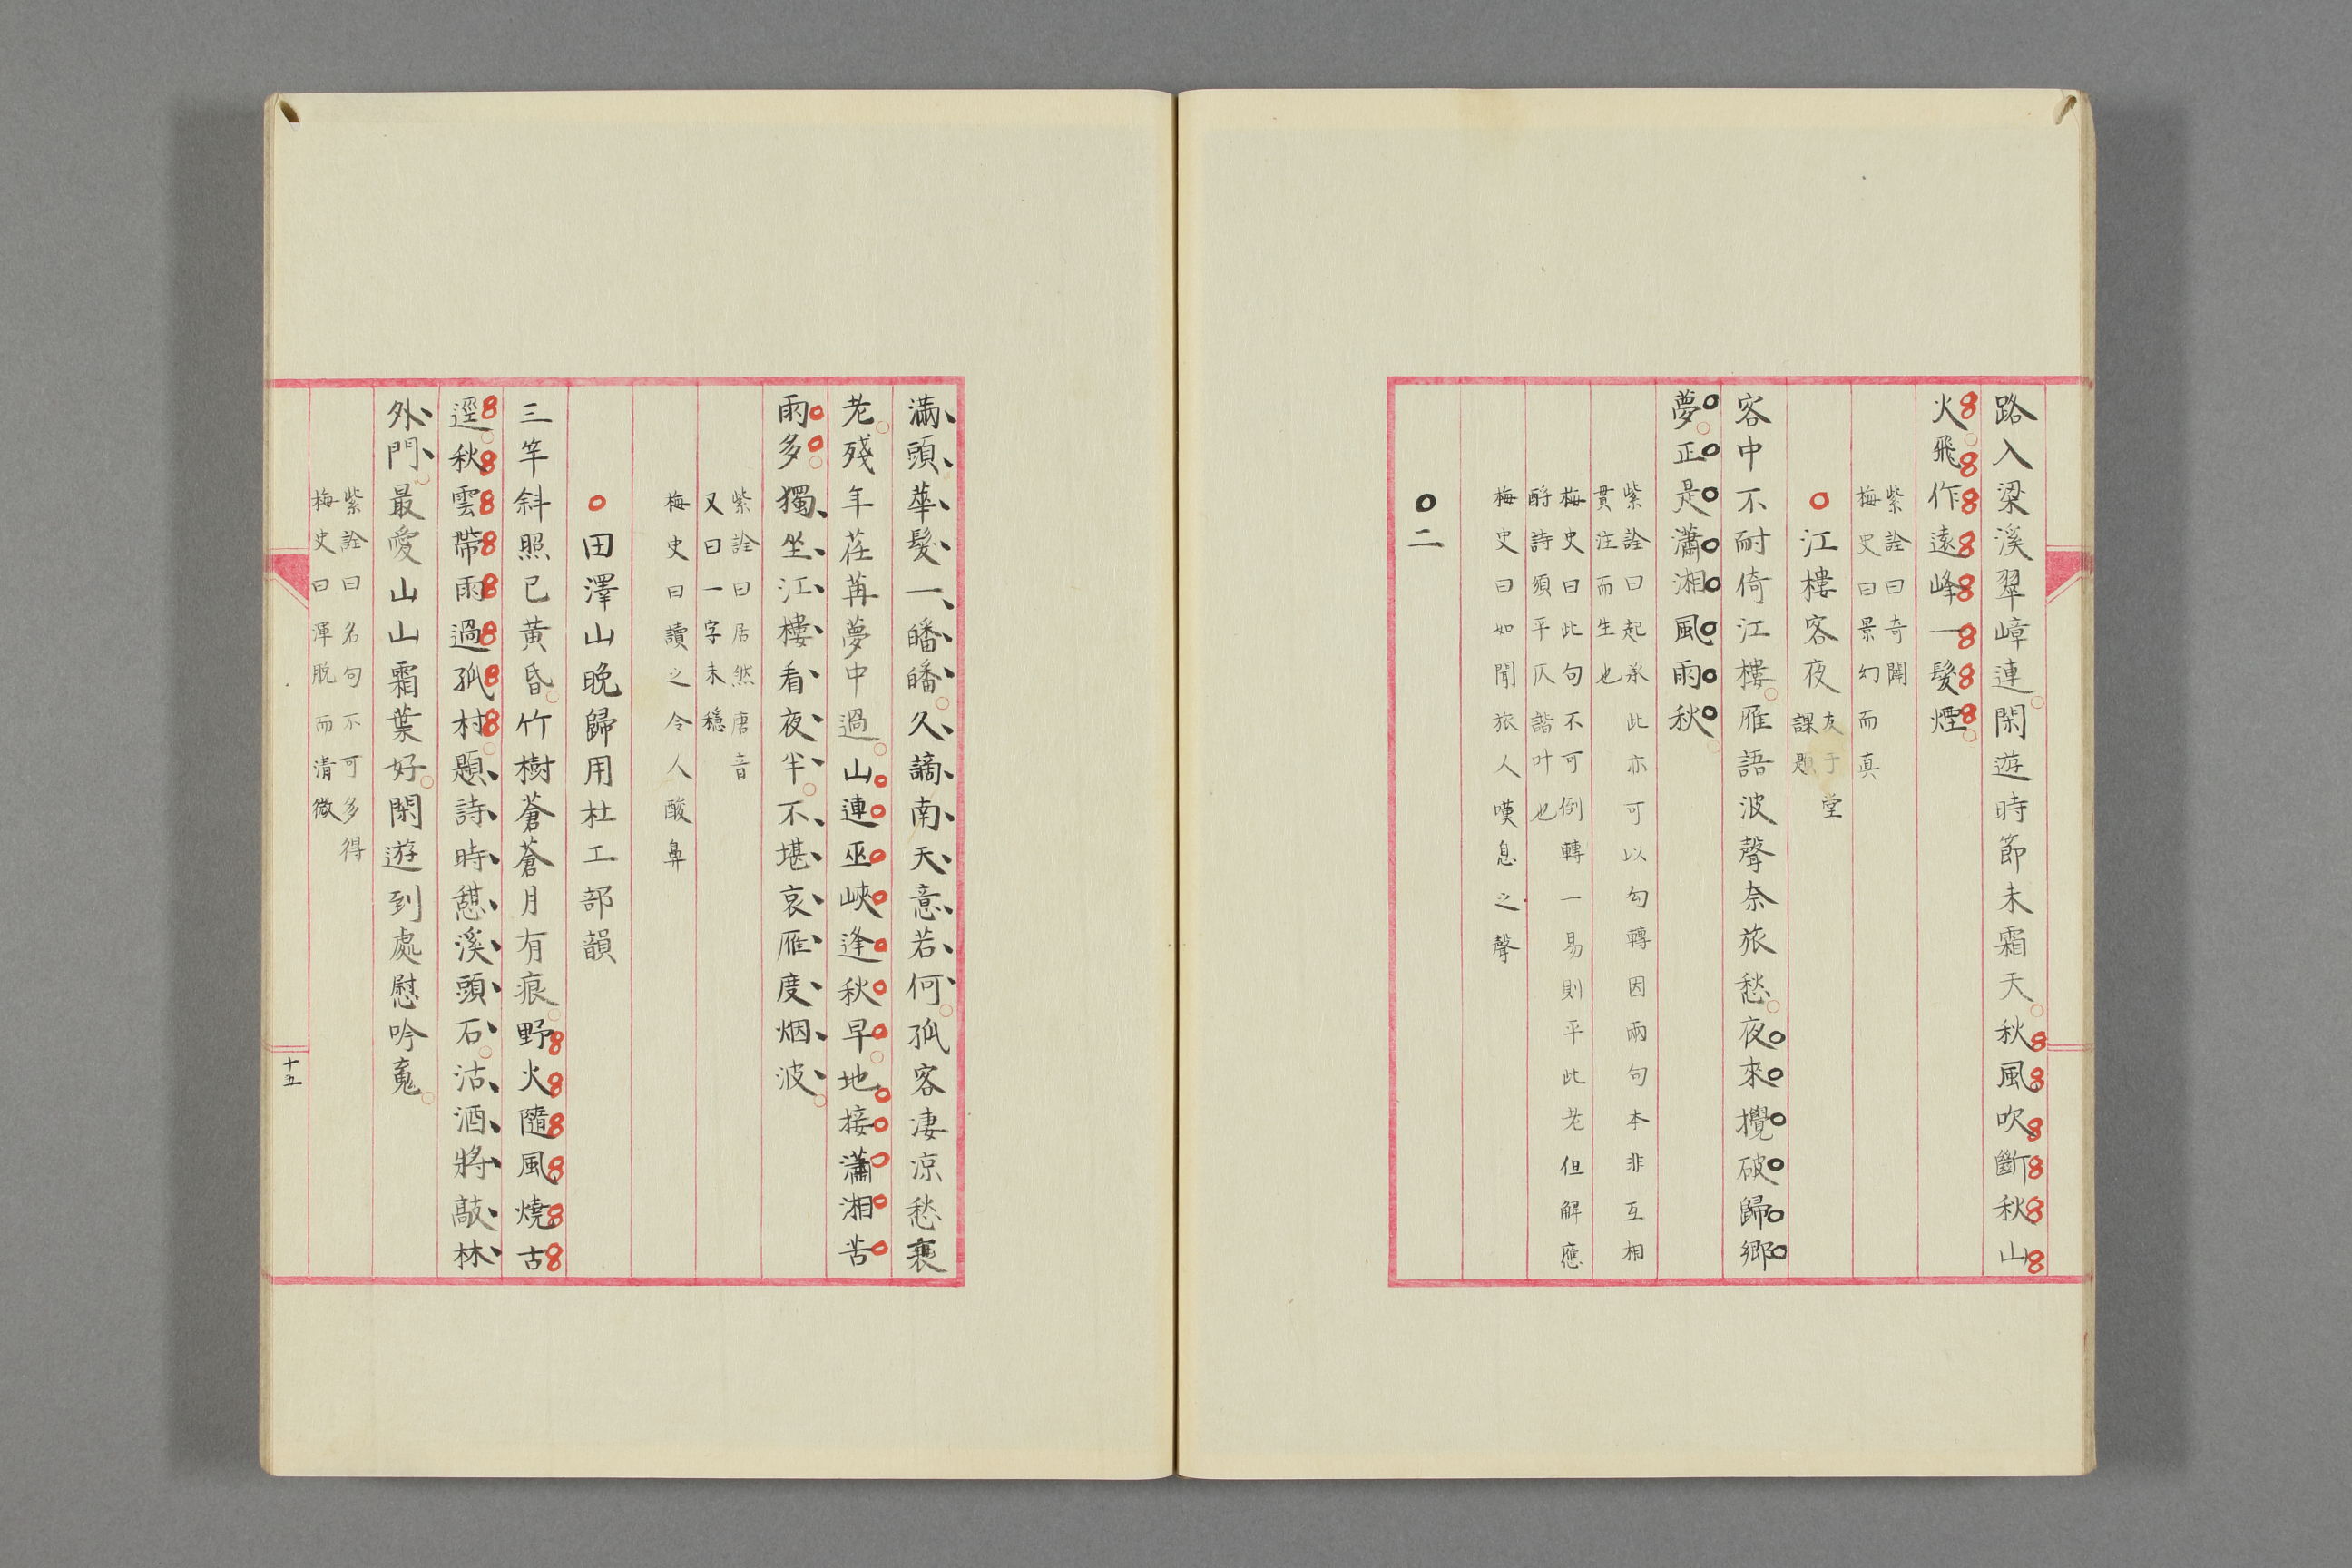 路入梁溪翠嶂連閑遊時節未霜天秋風吹斷秋山
火飛作遠峰一髮煙
紫詮曰奇闢
梅史曰景幻而真
江樓客夜
友于堂
課題
客中不耐倚江樓雁語波聲奈旅愁夜來攪破歸鄉
夢正是瀟湘風雨秋
紫詮曰起承此亦可以勾轉因兩句本非互相
貫注而生也
梅史曰此句不可倒轉一易則平此老但解應
酹詩須平仄諧叶也
梅史曰如聞旅人嘆息之聲
二
滿頭華髮一皤皤久謫南天意若何孤客淒涼愁裏
老殘年荏苒夢中過山連巫峽逢秋早地接瀟湘苦
雨多獨坐江樓看夜半不堪哀雁度烟波
紫詮曰居然唐音
又曰一字未穩
梅史曰讀之令人酸鼻
田澤山晚歸用杜工部韻
三竿斜照已黃昏竹樹蒼蒼月有痕野火隨風燒古
逕秋雲帶雨過孤村題詩時憩溪頭石沽酒將敲林
外門最愛山山霜葉好閑遊到處慰吟䰟
紫詮曰名句不可多得
梅史曰渾脫而清微
十五